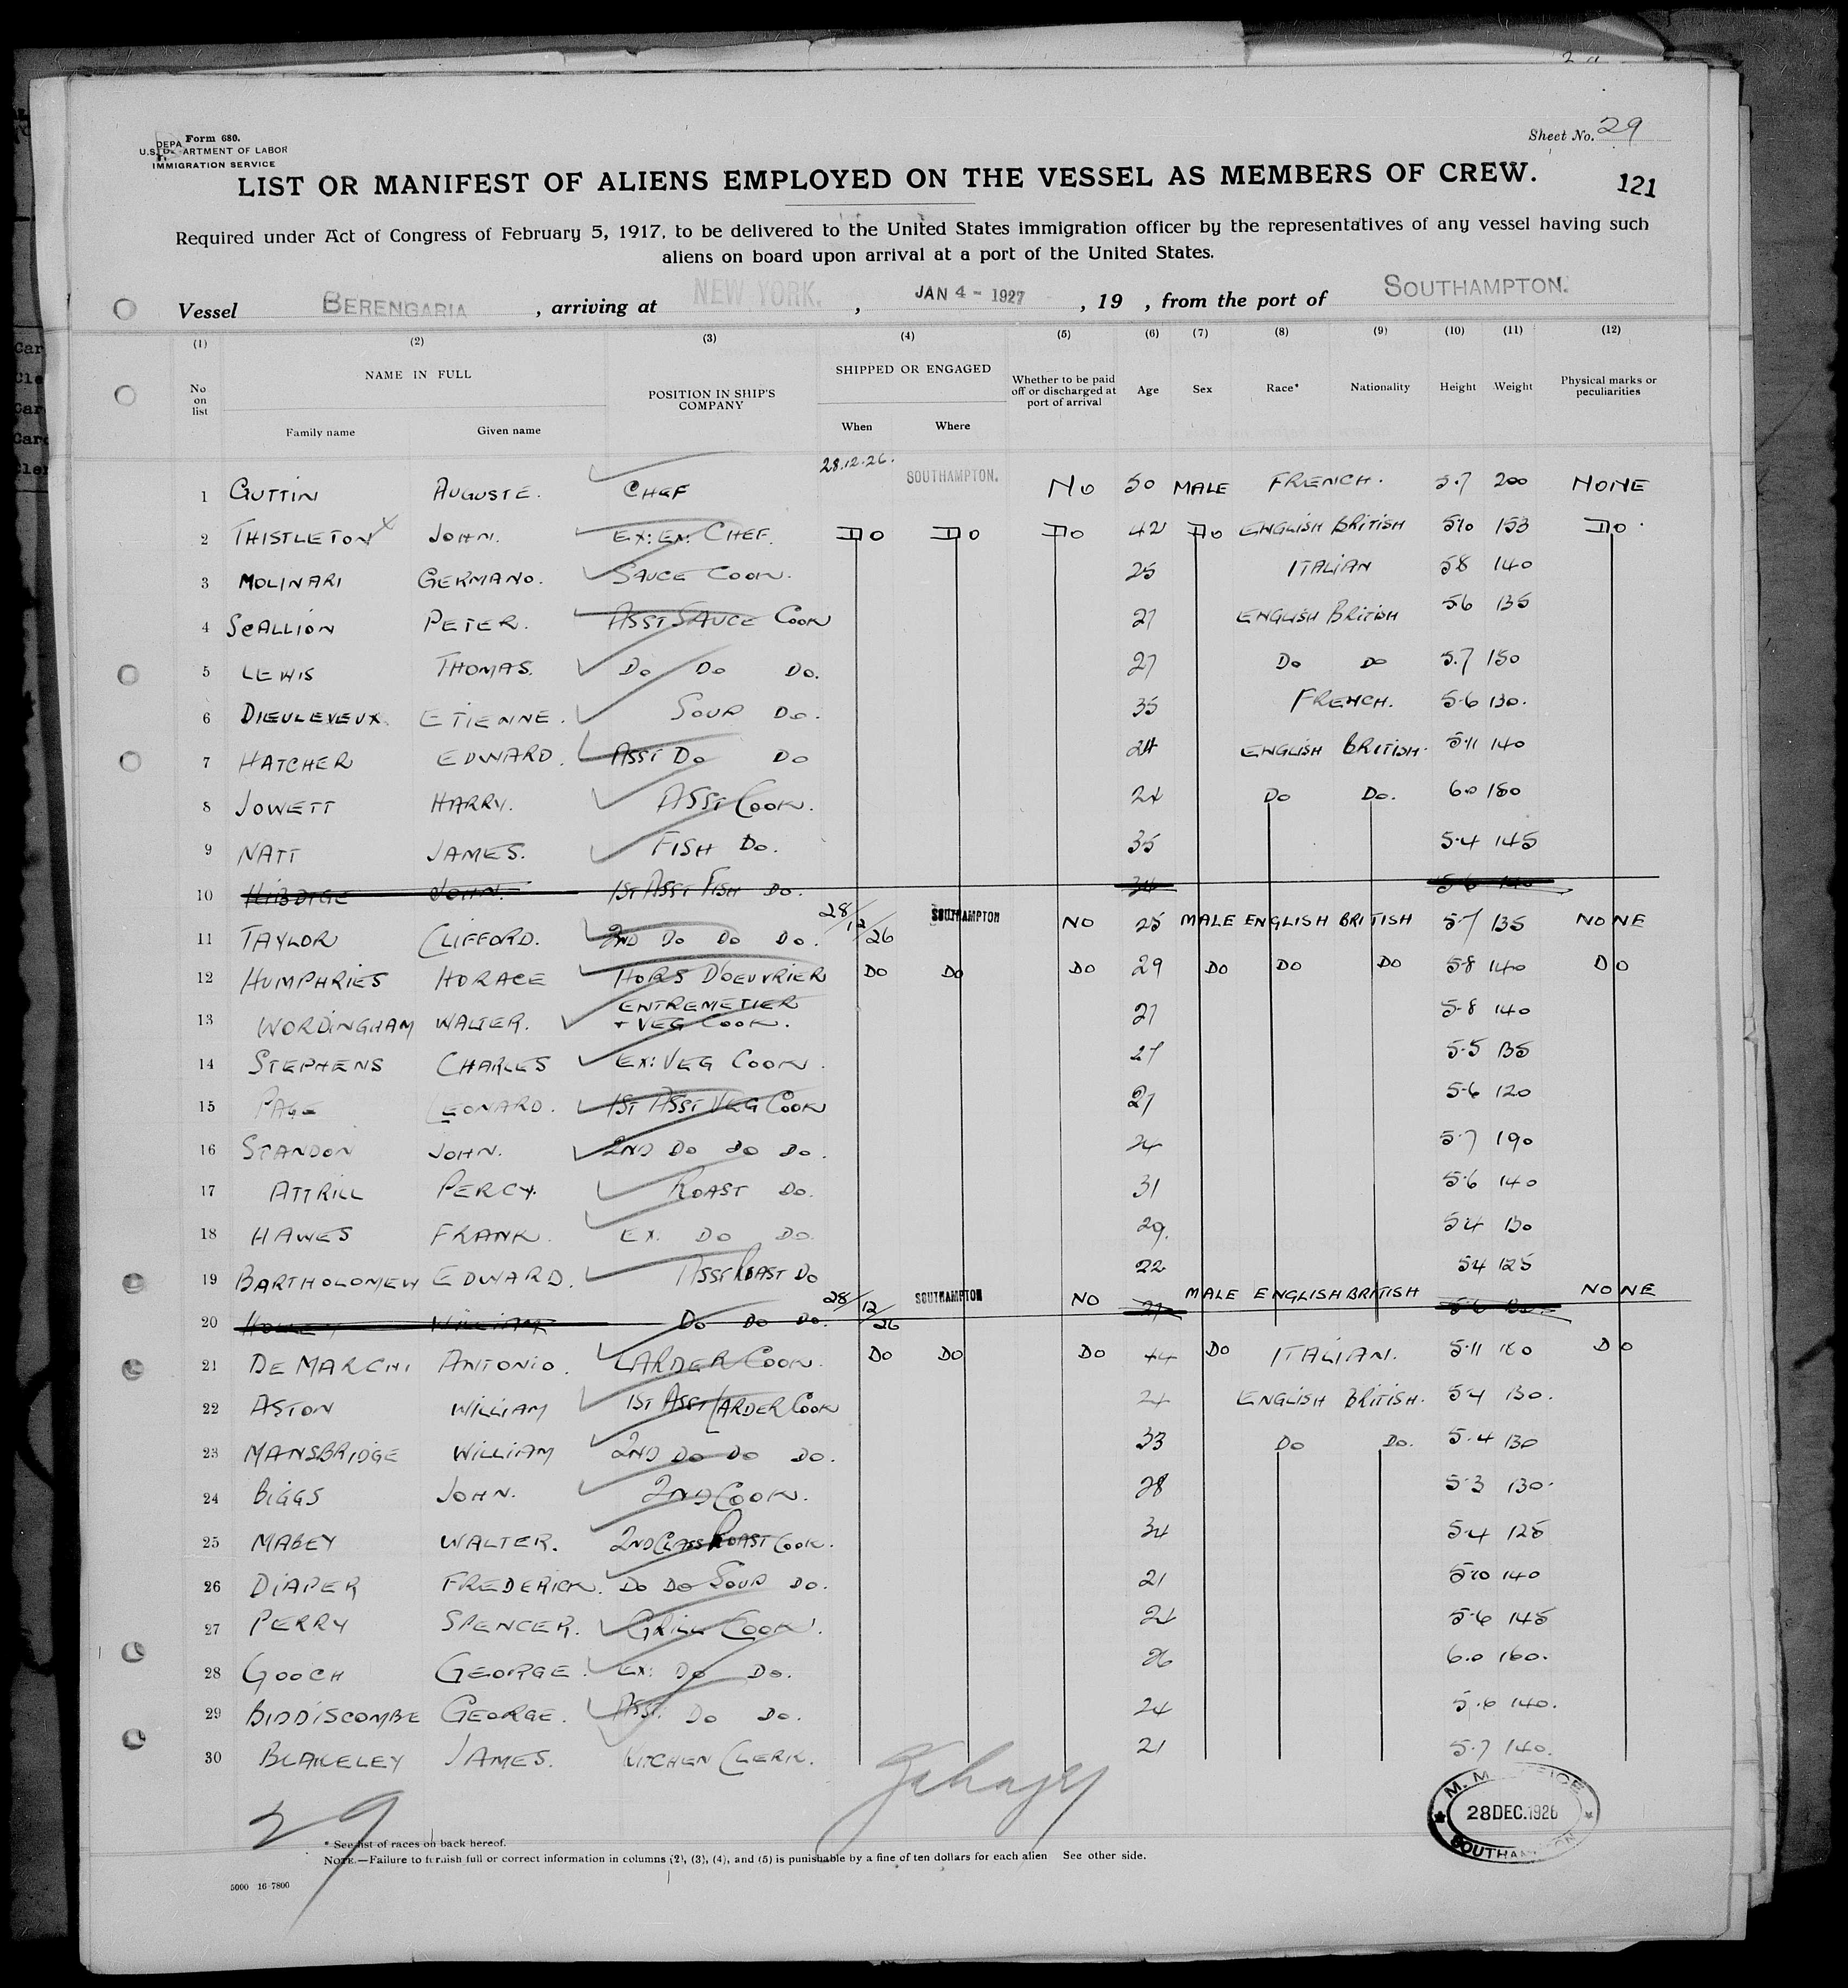 Form 680.
U.S. DEPARTMENT OF LABOR
IMMIGRATION SERVICE
Sheet No. 29
LIST OR MANIFEST OF ALIENS EMPLOYED ON THE VESSEL AS MEMBERS OF CREW.
121
Required under Act of Congress of February 5, 1917, to be delivered to the United States immigration officer by the representatives of any vessel having such
aliens on board upon arrival at a port of the United States.
Vessel BERENGARIA, arriving at NEW YORK, JAN 4 - 1927, 19 , from the port of SOUTHAMPTON.
(1) (2) (3) (4) (5) (6) (7) (8) (9) (10) (11) (12)
No on list NAME IN FULL Family name Given name POSITION IN SHIP'S COMPANY SHIPPED OR ENGAGED When Where Whether to be paid off or discharged at port of arrival Age Sex Race* Nationality Height Weight Physical marks or peculiarities
1 GUTTIN AUGUSTE. CHEF 28.12.26. SOUTHAMPTON. NO 50 MALE FRENCH. 5.7 200 NONE
2 THISTLETON X JOHN. EX: EN: CHEF. DO DO DO 42 DO ENGLISH BRITISH 5.10 153 DO.
3 MOLINARI GERMANO. SAUCE COOK. 25 ITALIAN 5.8 140
4 SCALLION PETER. ASST SAUCE COOK 27 ENGLISH BRITISH 5.6 135
5 LEWIS THOMAS. DO DO DO. 27 DO DO 5.7 150
6 DIEULEVEUX ETIENNE. SOUP DO. 35 FRENCH. 5.6 130.
7 HATCHER EDWARD. ASST DO DO 24 ENGLISH BRITISH. 5.11 140
8 JOWETT HARRY. ASST COOK. 24 DO DO. 6.0 180
9 NATT JAMES. FISH DO. 35 5.4 145
10 JOHN. 1ST ASST FISH DO.
11 TAYLOR CLIFFORD. 2ND DO DO DO. 28/12/26 SOUTHAMPTON NO 25 MALE ENGLISH BRITISH 5.7 135 NONE
12 HUMPHRIES HORACE HORS D'OEUVRIER DO DO DO 29 DO DO DO 5.8 140 DO
13 WORDINGHAM WALTER. ENTREMETIER + VEG COOK. 27 5.8 140
14 STEPHENS CHARLES EX: VEG COOK. 27 5.5 135
15 PAGE LEONARD. 1ST ASST VEG COOK 27 5.6 120
16 STANDON JOHN. 2ND DO DO DO. 24 5.7 190
17 ATTRILL PERCY. ROAST DO. 31 5.6 140
18 HAWES FRANK. EX: DO DO. 29. 5.4 130
19 BARTHOLOMEW EDWARD. ASST ROAST DO 22 5.4 125
20 WILLIAM DO DO DO. 28/12/26 SOUTHAMPTON NO MALE ENGLISH BRITISH NONE
21 DE MARCHI ANTONIO. LARDER COOK. DO DO DO 44 DO ITALIAN. 5.11 160 DO
22 ASTON WILLIAM 1ST ASST LARDER COOK 24 ENGLISH BRITISH. 5.4 130.
23 MANSBRIDGE WILLIAM 2ND DO DO DO. 33 DO DO. 5.4 130
24 BIGGS JOHN. 2ND COOK. 28 5.3 130.
25 MABEY WALTER. 2ND CLASS ROAST COOK. 34 5.4 125
26 DIAPER FREDERICK. DO DO SOUP DO. 21 5.10 140
27 PERRY SPENCER. GRILL COOK. 24 5.6 145
28 GOOCH GEORGE. EX: DO DO. 26 6.0 160.
29 BIDDISCOMBE GEORGE. ASST. DO DO. 24 5.6 140.
30 BLAKELEY JAMES. KITCHEN CLERK. 21 5.7 140.
29
M. M. OFFICE
28 DEC. 1926
SOUTHAMPTON
* See list of races on back hereof.
NOTE.—Failure to furnish full or correct information in columns (2), (3), (4), and (5) is punishable by a fine of ten dollars for each alien See other side.
5000 16-7800